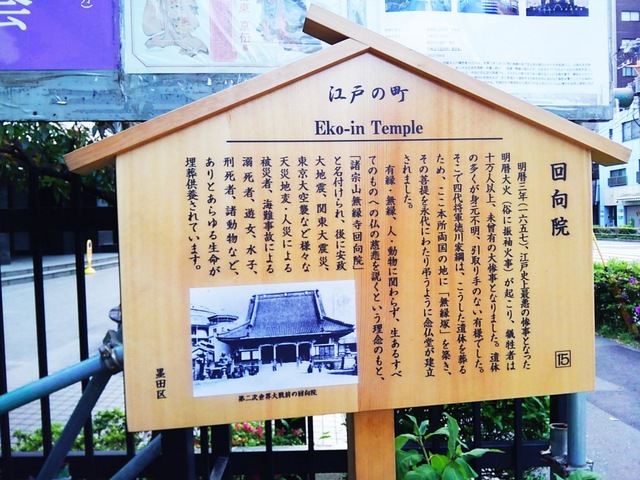 江戸の町
Eko-in Temple
回向院
明暦三年（一六五七）、江戸史上最悪の惨事となった
明暦大火（俗に振袖火事）が起こり、犠牲者は
十万人以上、未曾有の大惨事となりました。遺体
の多くが身元不明、引取り手のない有様でした。
そこで四代将軍徳川家綱は、こうした遺体を葬る
ため、ここ本所両国の地に「無縁塚」を築き、
その菩提を永代にわたり弔うように念仏堂が建立
されました。
有縁・無縁、人・動物に関わらず、生あるすべ
てのものへの仏の慈悲を説くという理念のもと、
「諸宗山無縁寺回向院」
と名付けられ、後に安政
大地震、関東大震災、
東京大空襲など様々な
天災地変・人災による
被災者、海難事故による
溺死者、遊女、水子、
刑死者、諸動物など、
ありとあらゆる生命が
埋葬供養されています。
第二次世界大戦前の回向院
墨田区
15